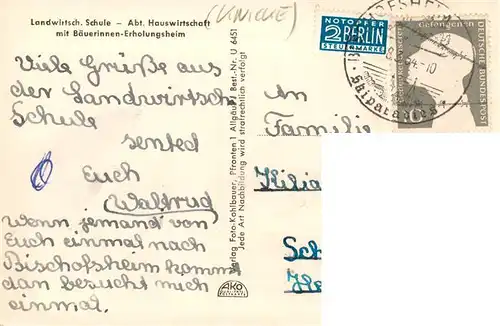 Landwirtsch. Schule – Abt. Hauswirtschaft
mit Bäuerinnen-Erholungsheim
Viele Grüße aus
der Landwirtsch
Schule
sented
Euch
Waltrud
Wenn jemand von
Euch einmal nach
Bischofsheim kommt
dan besucht mich
einmal.
AKO
Verlag Foto-Kohlbauer, Pfronten 1 Allgäu / Best.-Nr. U 6451
Jede Art Nachbildung wird strafrechtlich verfolgt
NOTOPFER
2 BERLIN
STEUERMARKE
DEUTSCHE BUNDESPOST
Skiparadies
An
Familie
Kilia
Sc